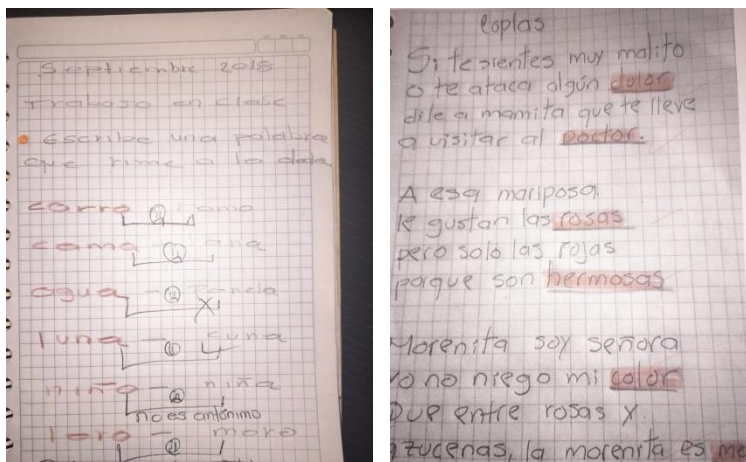 Septiembre 2018
Trabajo en clase
escribe una palabra
que rime a la dada
carro
cama
agua
luna - cuna
niño - niña
no es antónimo
loro - moro
coplas
Si te sientes muy malito
o te ataca algún dolor
dile a mamita que te lleve
a visitar al doctor.
A esa mariposa
le gustan las rosas
pero solo las rojas
porque son hermosas
Morenita soy señora
yo no niego mi color
Que entre rosas y
azucenas, la morenita es me